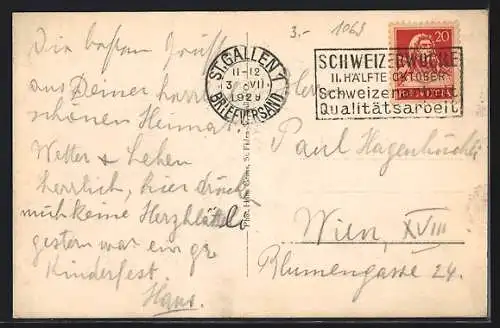 3.- 1063
ST. GALLEN 1
11-12
VII
1929
BRIEFVERSAND
SCHWEIZERWOCHE
II. HÄLFTE OKTOBER
Schweizer
Qualitätsarbeit
20
HELVETIA
Die besten Grüße
aus Deiner
schönen Heimat.
Wetter & Leben
herrlich, hier drückt
mich keine
gestern war ein gr.
Kinderfest.
Hans.
Herrn
Paul Hagenbüchli
Wien, XVIII
Blumengasse 24.